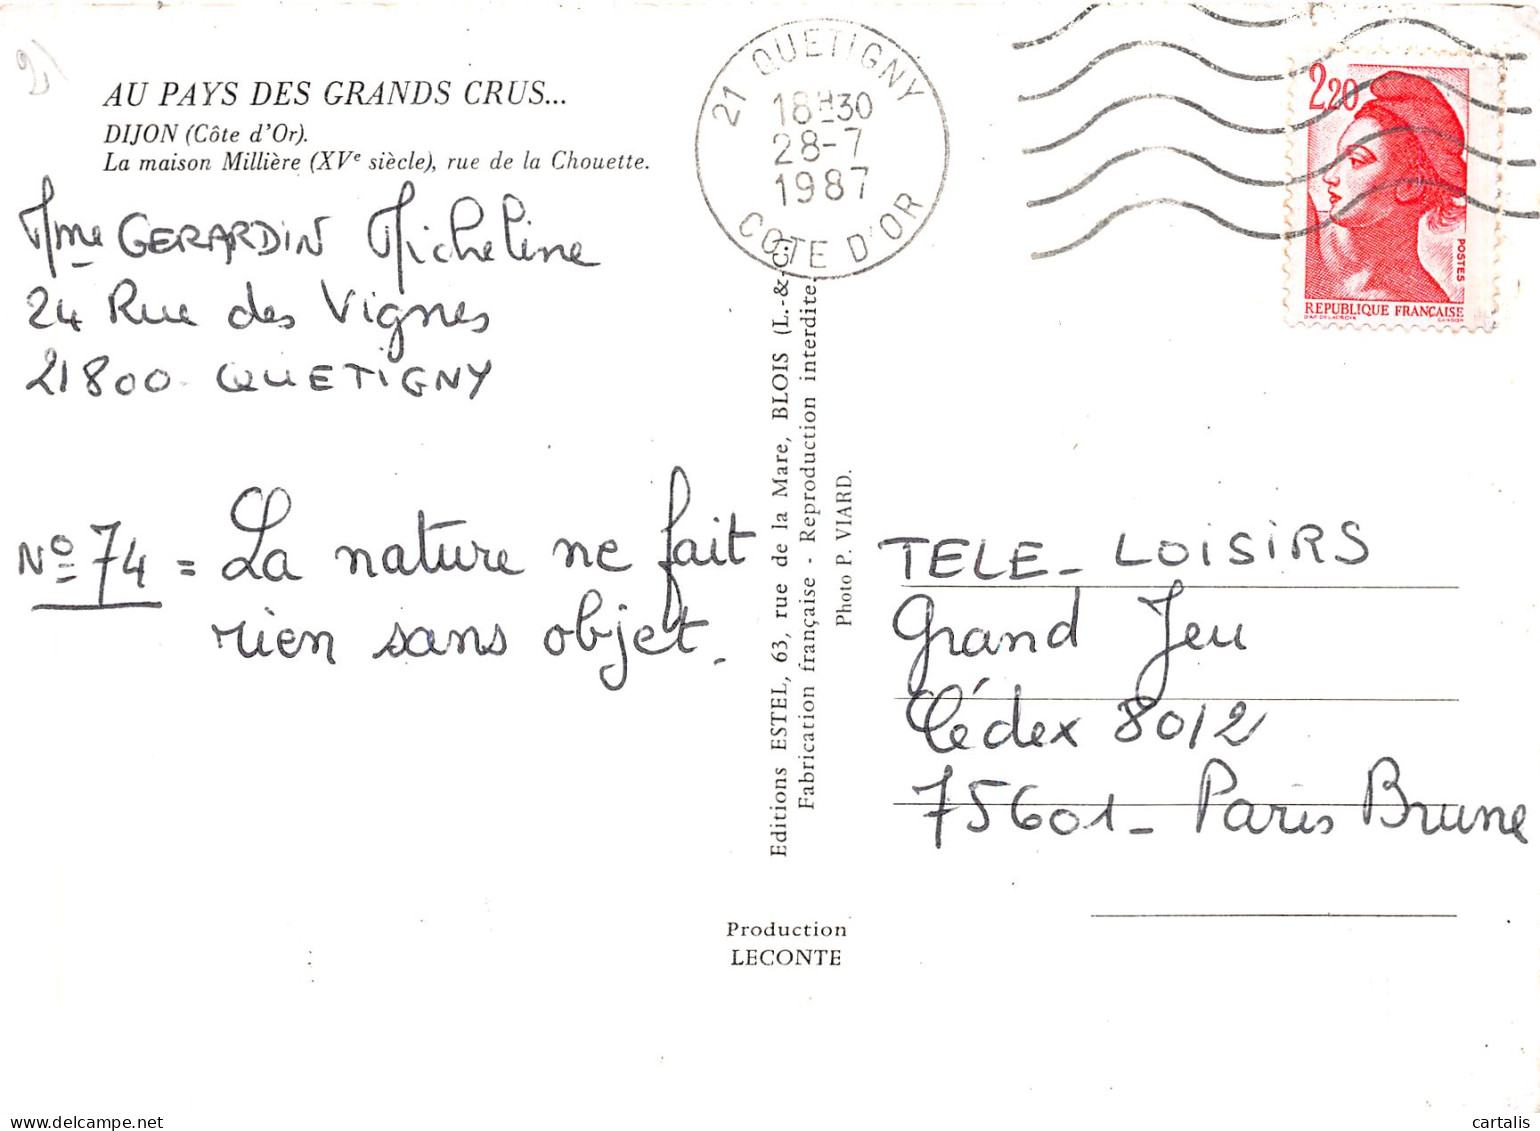 AU PAYS DES GRANDS CRUS...
DIJON (Côte d'Or).
La maison Millière (XVe siècle), rue de la Chouette.
Mme GERARDIN Micheline
24 Rue des Vignes
21800 QUETIGNY
No 74 = La nature ne fait
rien sans objet.
21 QUETIGNY
18H30
28-7
1987
COTE D'OR
2,20
POSTES
REPUBLIQUE FRANÇAISE
D'AP. DELACROIX GANDON
Editions ESTEL, 63, rue de la Mare, BLOIS (L.-&-C.)
Fabrication française - Reproduction interdite.
Photo P. VIARD.
TELE_ LOISIRS
Grand Jeu
Cédex 8012
75601_ Paris Brune
Production
LECONTE
cartalis
delcampe.net